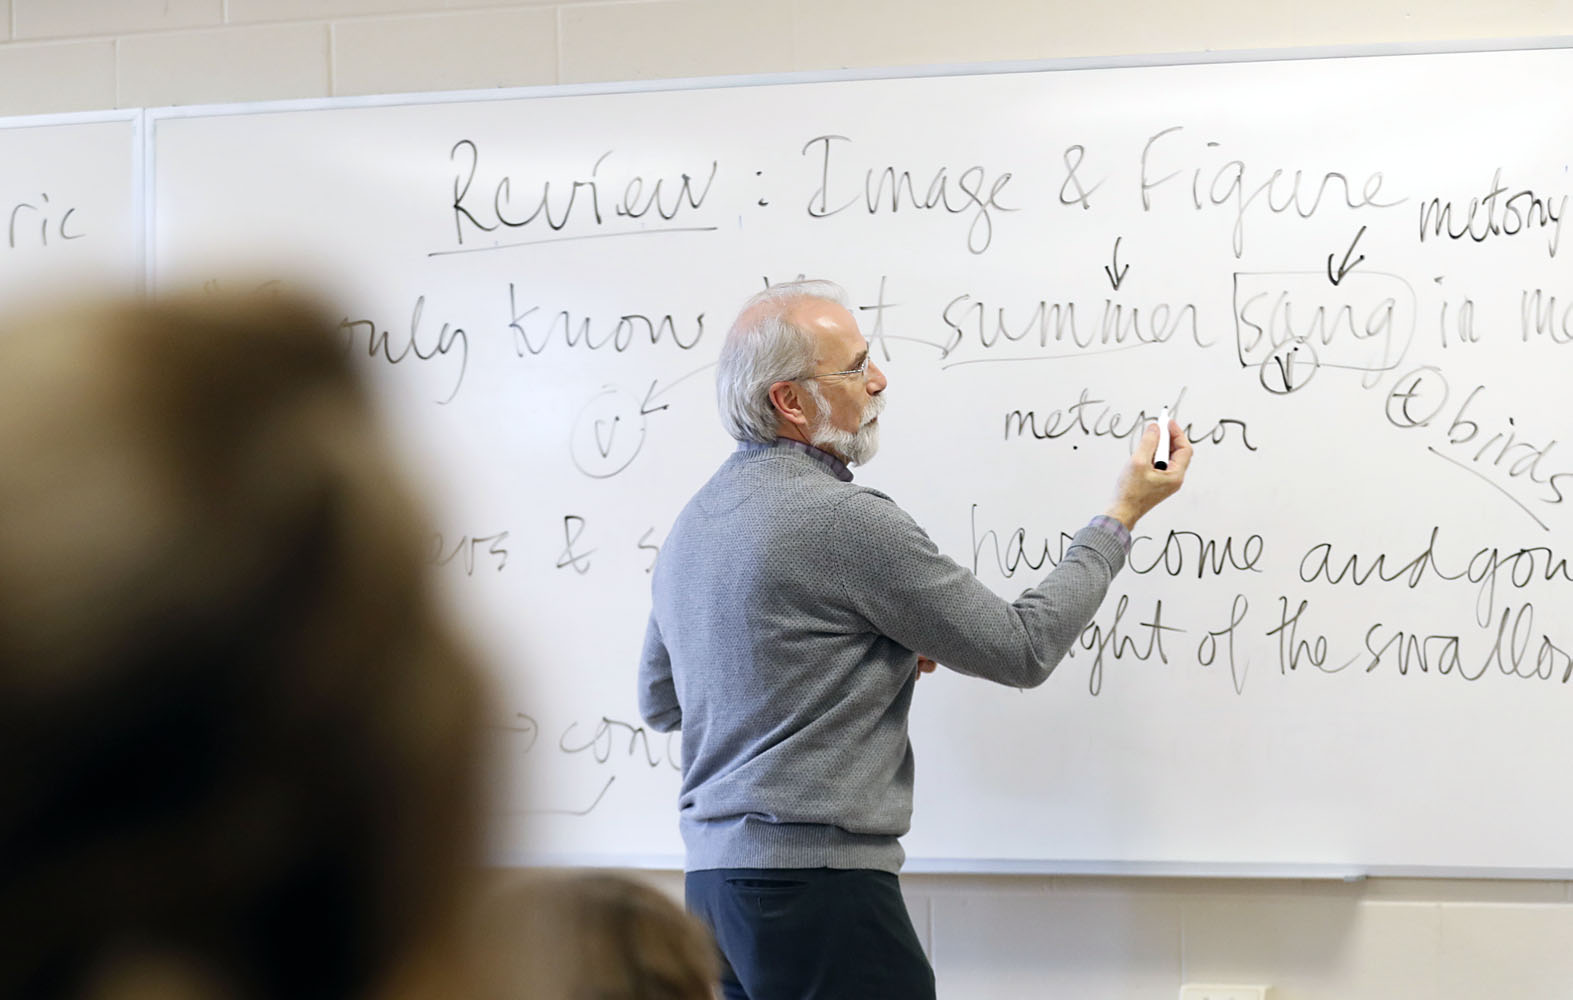 ric
Review : Image & Figure
metony
only know t summer sang in me
v
v
t
birds
metaphor
ers & s have come and gon
ght of the swallow
→ con